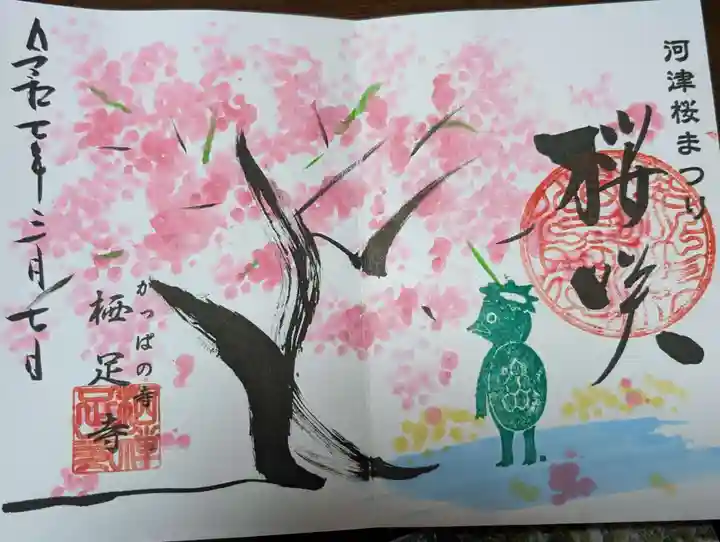 河津桜まつり
桜咲
かっぱの寺
栖足寺
令和七年三月七日